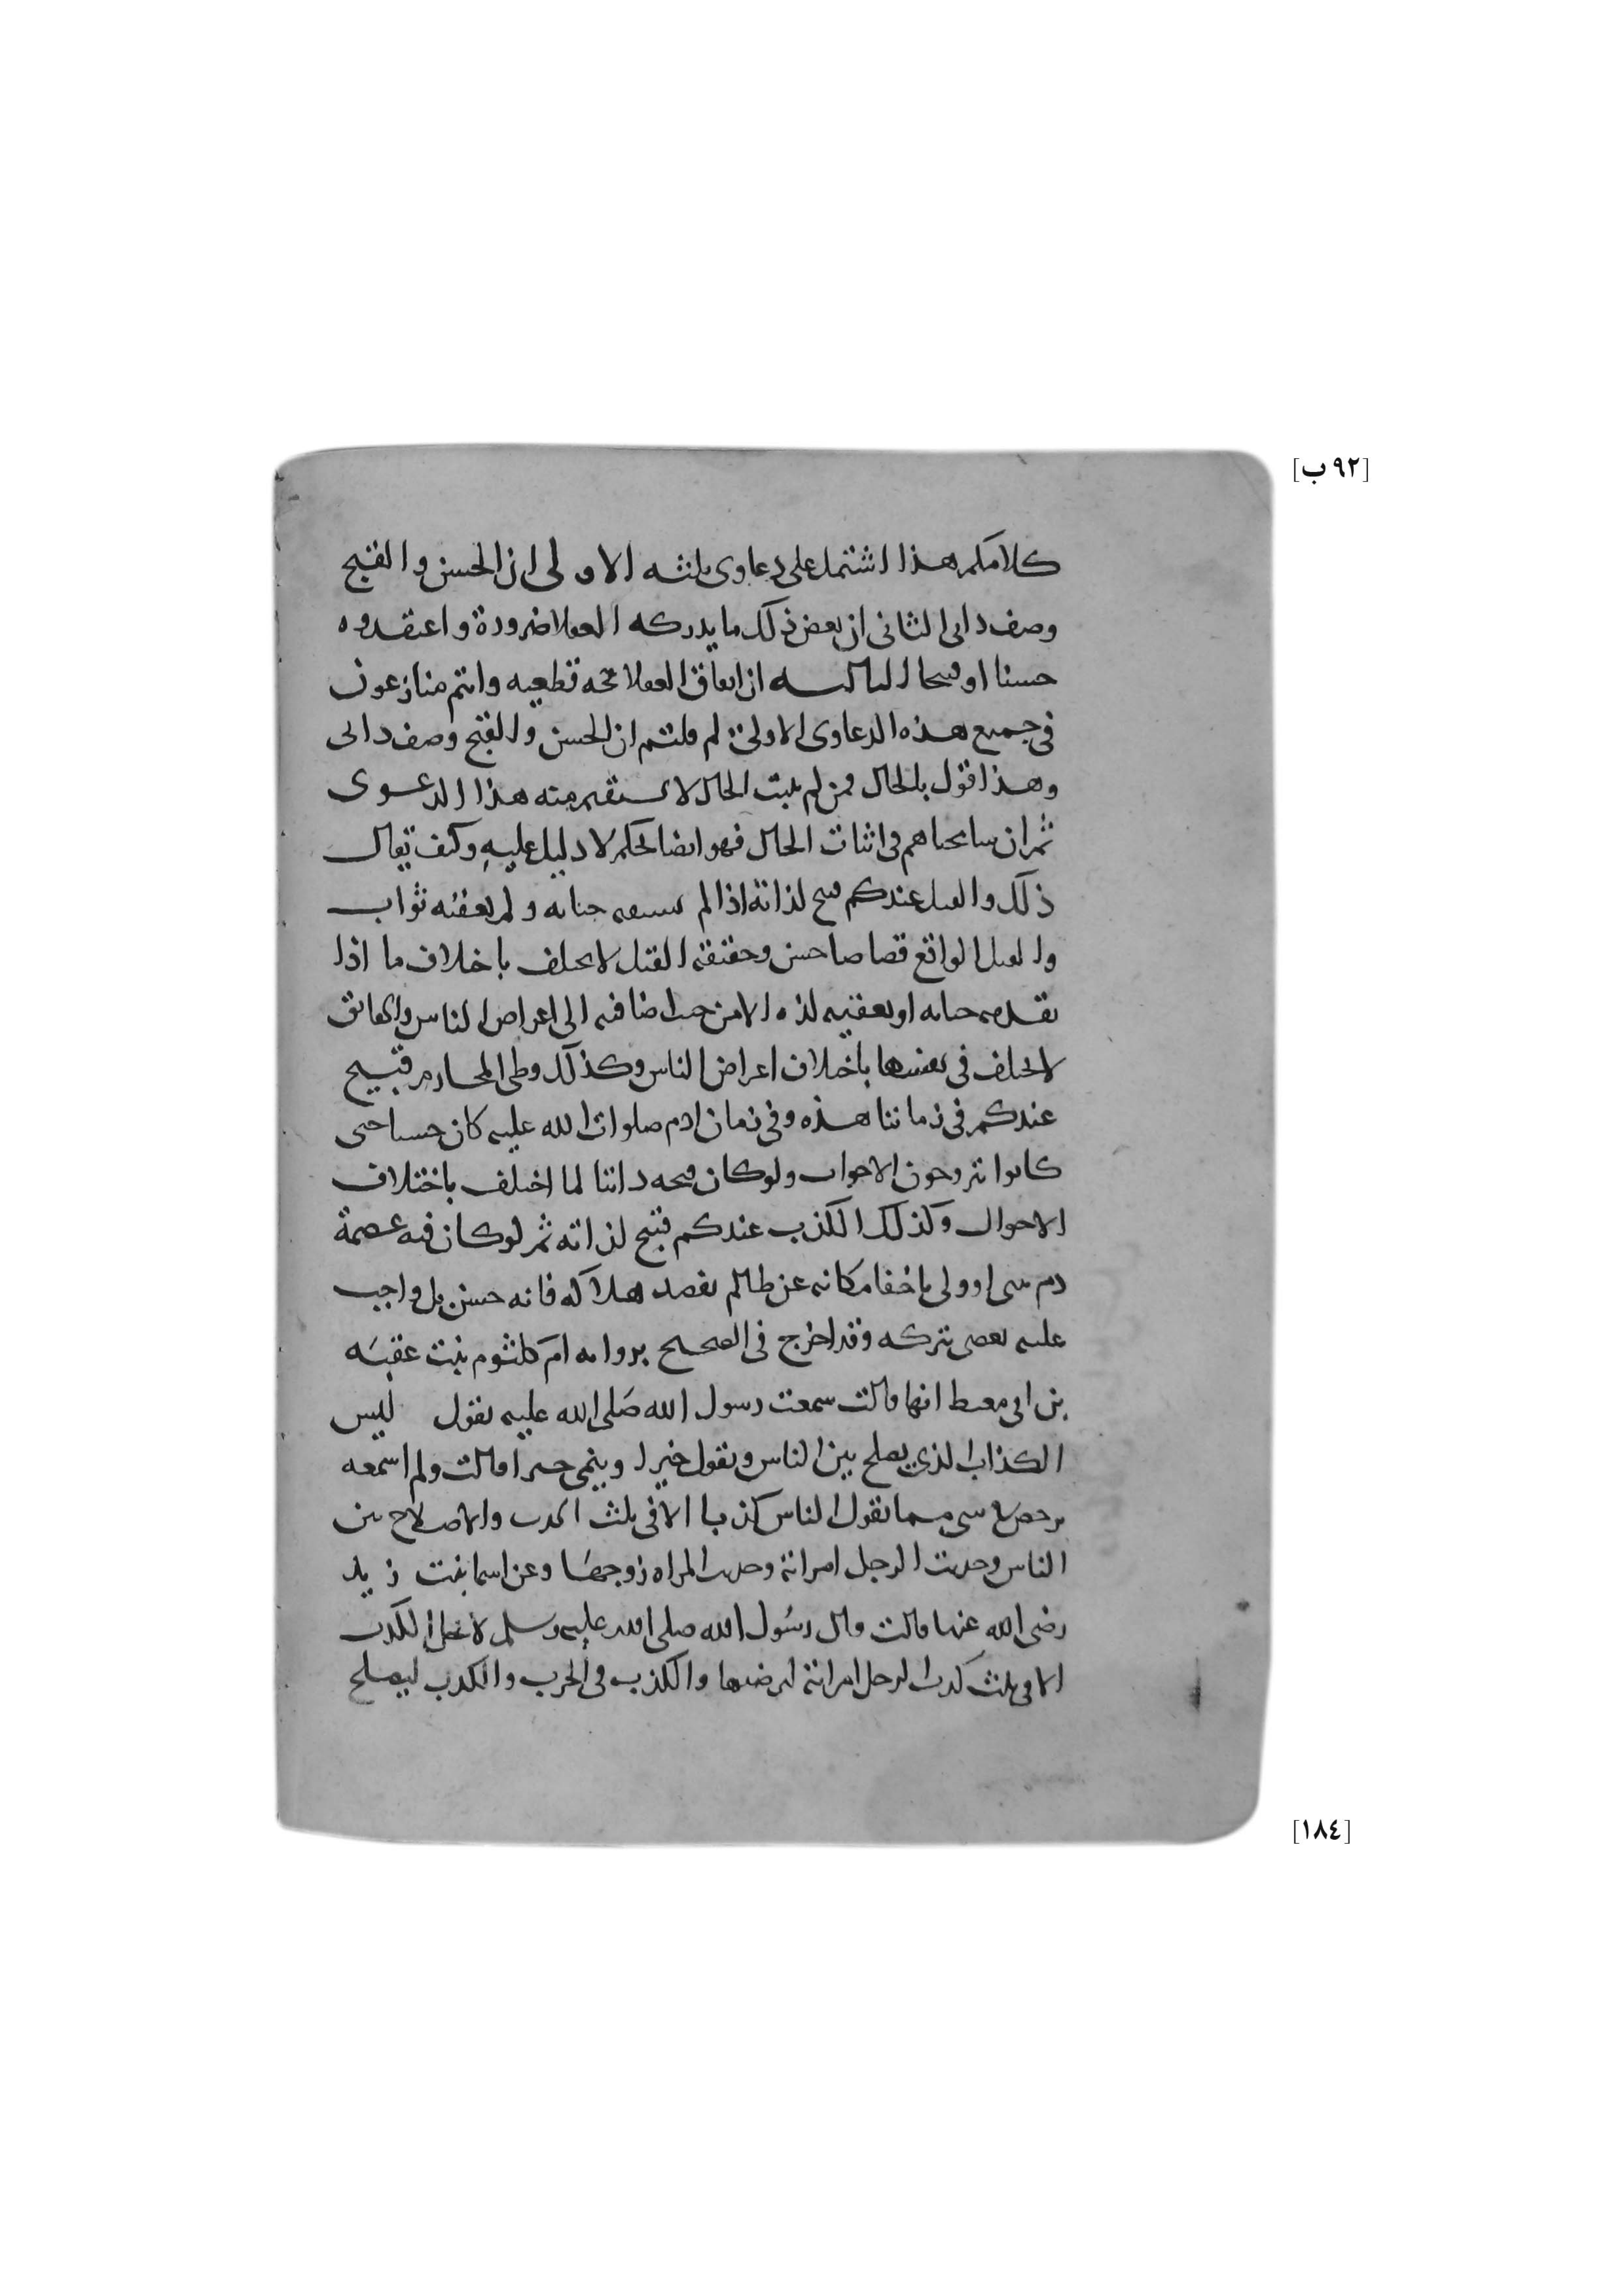 [٩٢ ب]
كلامكم هذا اشتمل على دعاوى ثلثه الاولى ان الحسن والقبح
وصف ذاتي الثاني ان بعض ذلك ما يدركه العقلا ضرورة واعتقدوه
حسنا او قبيحا الثالثه ان اتفاق العقلا حجه قطعيه وانتم منازعون
في جميع هذه الدعاوى الاولى لم قلتم ان الحسن والقبح وصف ذاتي
وهذا قول بالحال فمن لم يثبت الحال لا يستقيم منه هذا الدعوى
ثم ان سامحناهم في اثبات الحال فهو ايضا تحكم لا دليل عليه وكيف يقال
ذلك والقتل عندكم قبيح لذاته اذا لم يسبقه جنايه ولم يعقبه ثواب
والقتل الواقع قصاصا حسن وحقيقة القتل لا يختلف باختلاف ما اذا
تقدمه جنايه او يعقبه لذه الا من حيث اضافته الى اغراض الناس والحقائق
لا تختلف في نفسها باختلاف اغراض الناس وكذلك وطي المحارم قبيح
عندكم في زماننا هذه وفي زمان ادم صلوات الله عليه كان حسنا حتى
كانوا يتزوجون الاخوات ولو كان قبحه ذاتيا لما اختلف باختلاف
الاحوال وكذلك الكذب عندكم قبيح لذاته ثم لو كان فيه عصمة
دم نبي او ولي باخفا مكانه عن ظالم يقصد هلاكه فانه حسن بل واجب
عليه يعصى بتركه وقد اخرج في الصحيح بروايه ام كلثوم بنت عقبه
بن ابي معيط انها قالت سمعت رسول الله صلى الله عليه يقول ليس
الكذاب الذي يصلح بين الناس ويقول خيرا وينمي خيرا قالت ولم اسمعه
يرخص في شي مما يقول الناس كذبا الا في ثلث الحرب والاصلاح بين
الناس وحديث الرجل امراته وحديث المراه زوجها وعن اسما بنت زيد
رضى الله عنها قالت قال رسول الله صلى الله عليه وسلم لا يحل الكذب
الا في ثلث كذب الرجل امراته ليرضيها والكذب في الحرب والكذب ليصلح
[١٨٤]